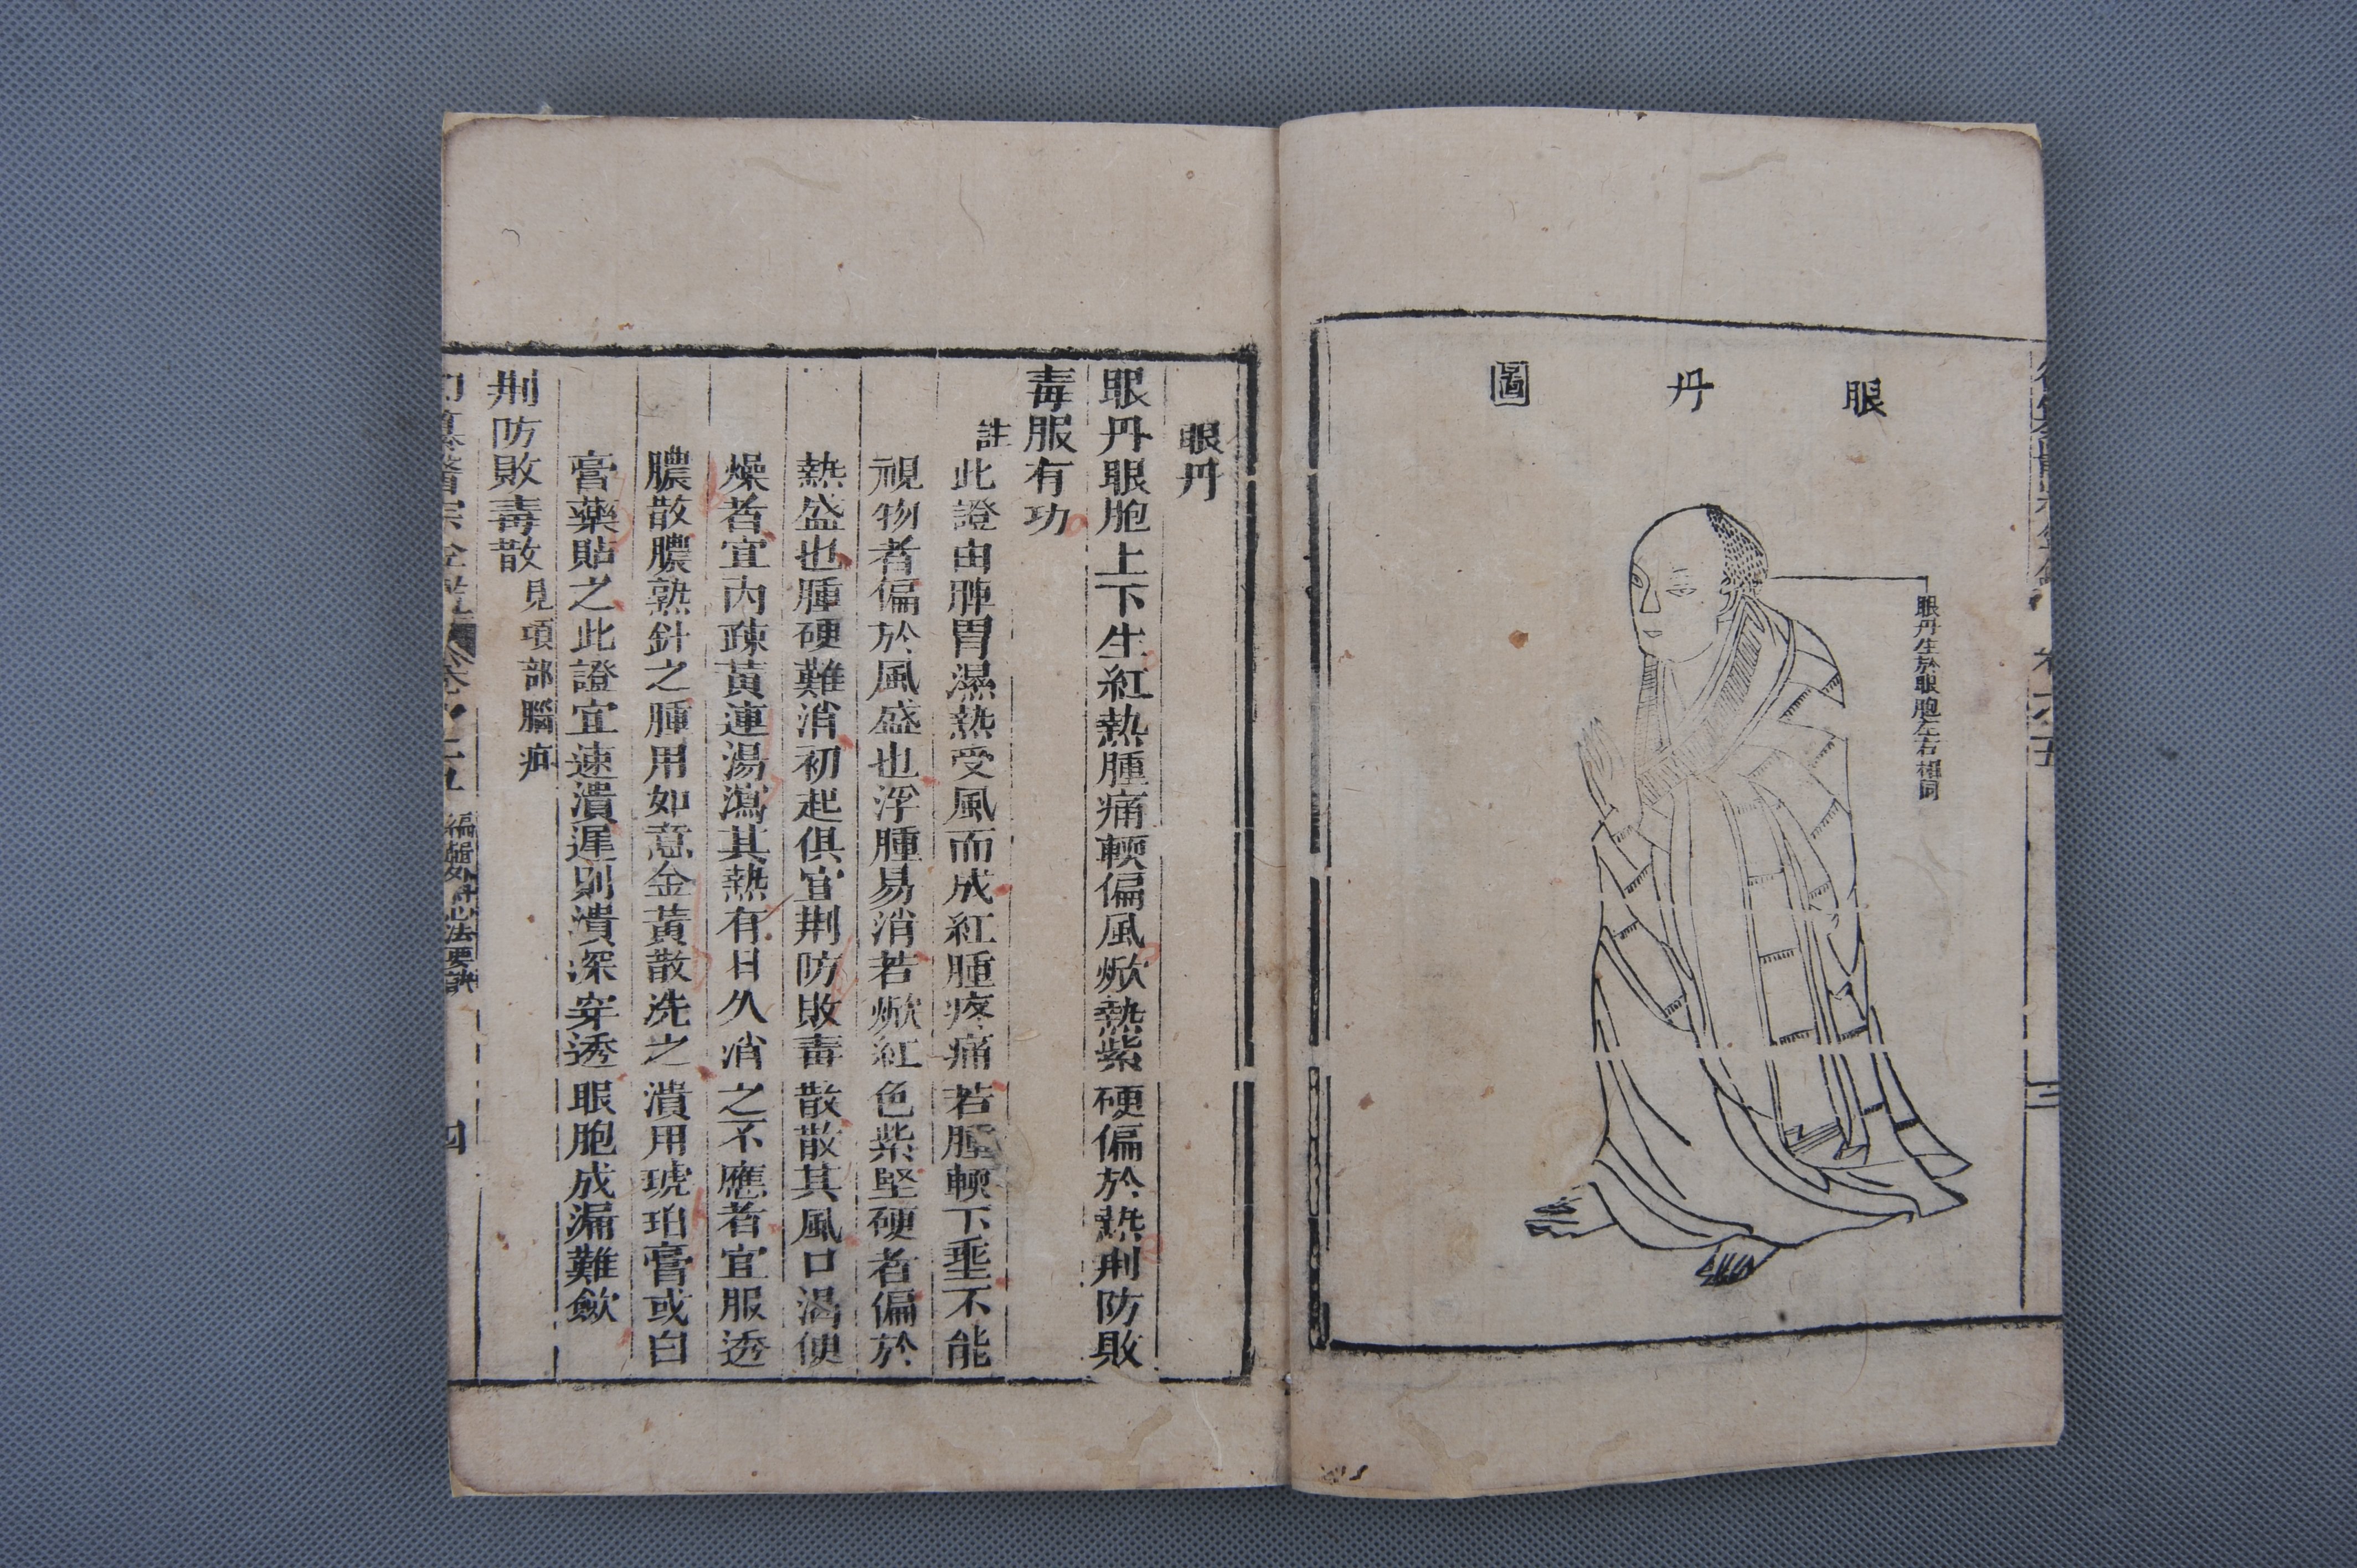 眼丹圖
眼丹生於眼胞左右相同
眼丹
眼丹眼胞上下生紅熱腫痛輭偏風焮熱紫硬偏於熱荆防敗
毒服有功
註此證由脾胃濕熱受風而成紅腫疼痛若腫輭下埀不能
視物者偏於風盛也浮腫易消若焮紅色紫堅硬者偏於
熱盛也腫硬難消初起俱宜荆防敗毒散散其風口渴便
燥者宜內疎黃連湯瀉其熱有日久消之不應者宜服透
膿散膿熟針之腫用如意金黃散洗之潰用琥珀膏或白
膏藥貼之此證宜速潰遲則潰深穿透眼胞成漏難歛
荆防敗毒散見項部腦疽
編輯外科心法要訣
四